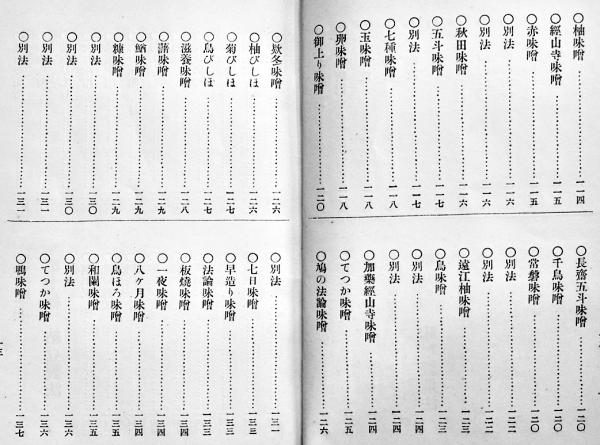 〇柚味噌……一一四
〇經山寺味噌……一一五
〇赤味噌……一一五
〇別法……一一六
〇別法……一一六
〇秋田味噌……一一六
〇五斗味噌……一一七
〇別法……一一七
〇七種味噌……一一八
〇玉味噌……一一八
〇卵味噌……一一八
〇御上り味噌……一二〇
〇長齋五斗味噌……一二〇
〇千鳥味噌……一二〇
〇常磐味噌……一二〇
〇別法……一二一
〇別法……一二二
〇遠江柚味噌……一二三
〇鳥味噌……一二三
〇別法……一二四
〇別法……一二四
〇加藥經山寺味噌……一二四
〇てつか味噌……一二五
〇鳩の法論味噌……一二六
〇欵冬味噌……一二六
〇柚びしほ……一二六
〇菊びしほ……一二七
〇鳥びしほ……一二七
〇滋養味噌……一二八
〇藷味噌……一二九
〇鯔味噌……一二九
〇糠味噌……一二九
〇別法……一三〇
〇別法……一三〇
〇別法……一三一
〇別法……一三一
〇別法……一三一
〇七日味噌……一三二
〇早造り味噌……一三三
〇法論味噌……一三三
〇板燒味噌……一三四
〇一夜味噌……一三四
〇八ケ月味噌……一三四
〇鳥ほろ味噌……一三五
〇和闌味噌……一三五
〇別法……一三六
〇てつか味噌……一三六
〇鴨味噌……一三七